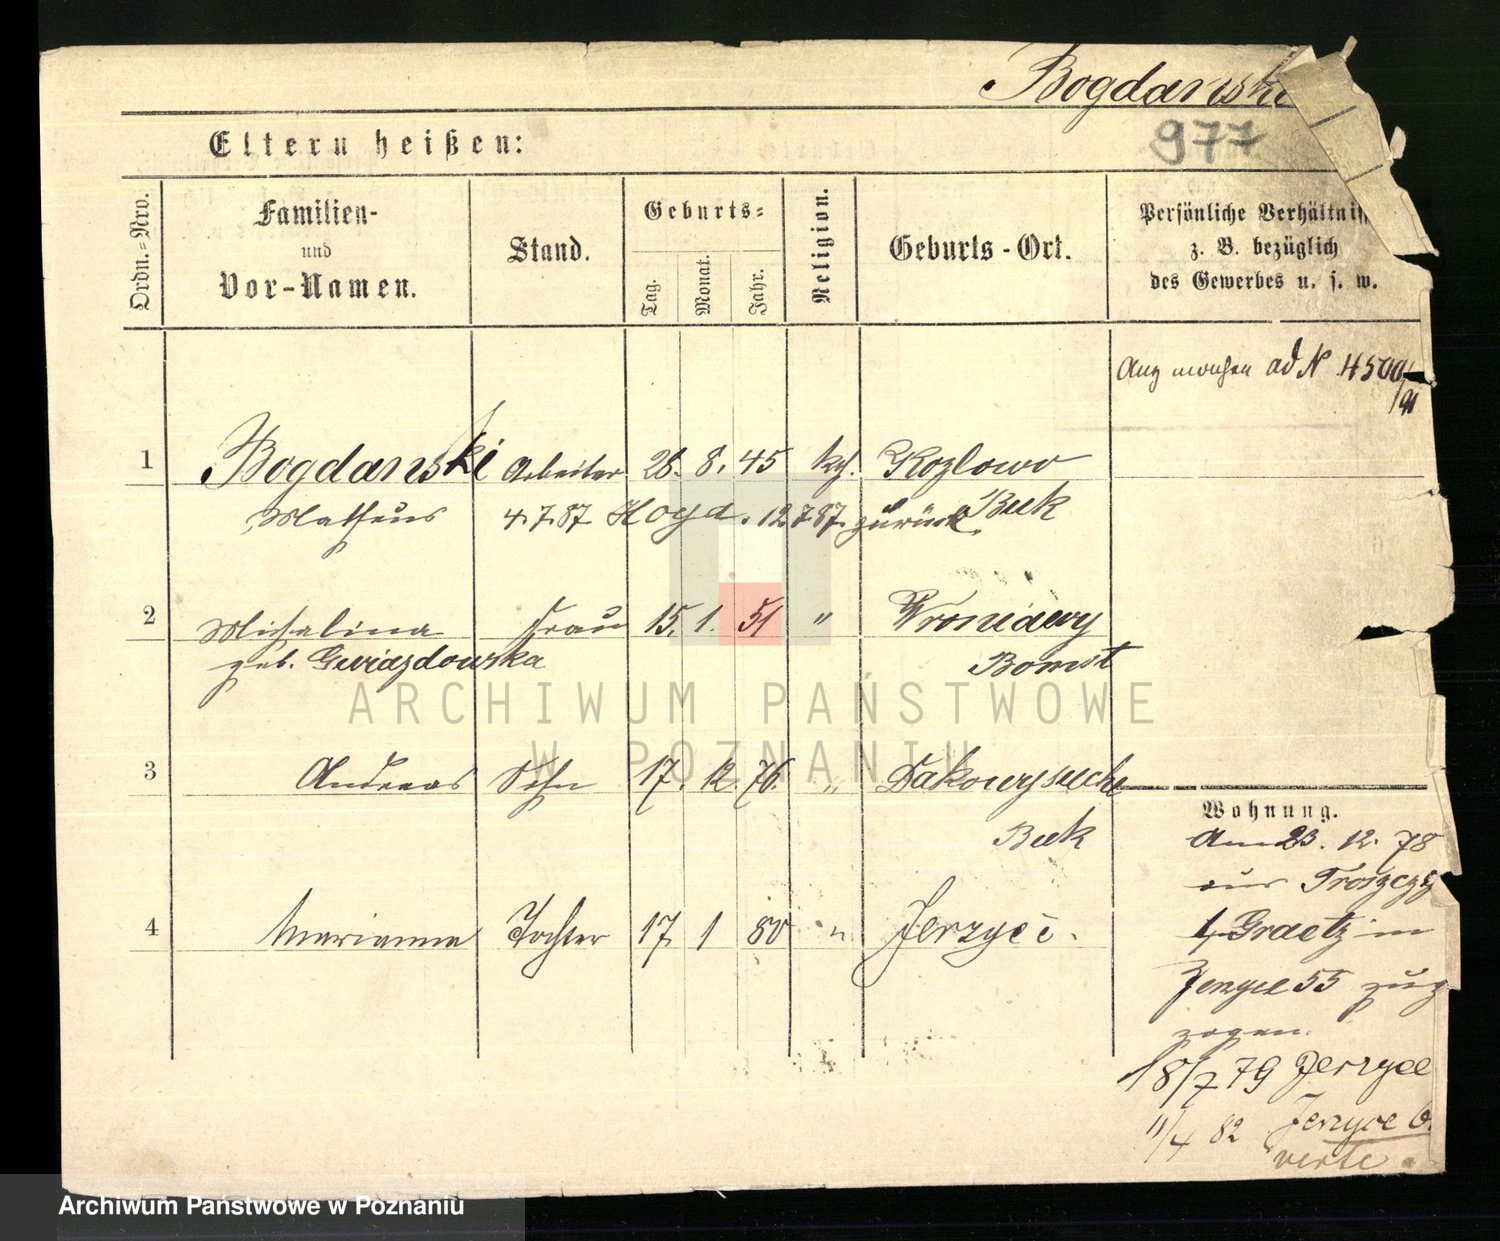 Bogdanski
977
Eltern heißen:
Ordn.-Nro.
Familien-
und
Vor-Namen.
Stand.
Geburts-
Tag.
Monat.
Jahr.
Religion.
Geburts-Ort.
Persönliche Verhältniss
z. B. bezüglich
des Gewerbes u. s. w.
ad N 4500/91
1 Bogdanski Arbeiter 28. 8. 45 ktf. Kozlowo
Matheus 4.7.87 12.7.87 zurück Buk
2 Michalina Frau 15. 1. 51 "
geb. Gwiazdowska Bomst
3 Andreas Sohn 17. 12. 76. "
Buk
4 Marianna Tochter 17. 1 80 " Jerzyce.
Wohnung.
Am 23. 12. 78
aus
Graetz in
Jerzyce 55 zuge
zogen.
18/7 79 Jerzyce
11/4 82 Jerzyce 6.
verte.
ARCHIWUM PAŃSTWOWE
W POZNANIU
Archiwum Państwowe w Poznaniu